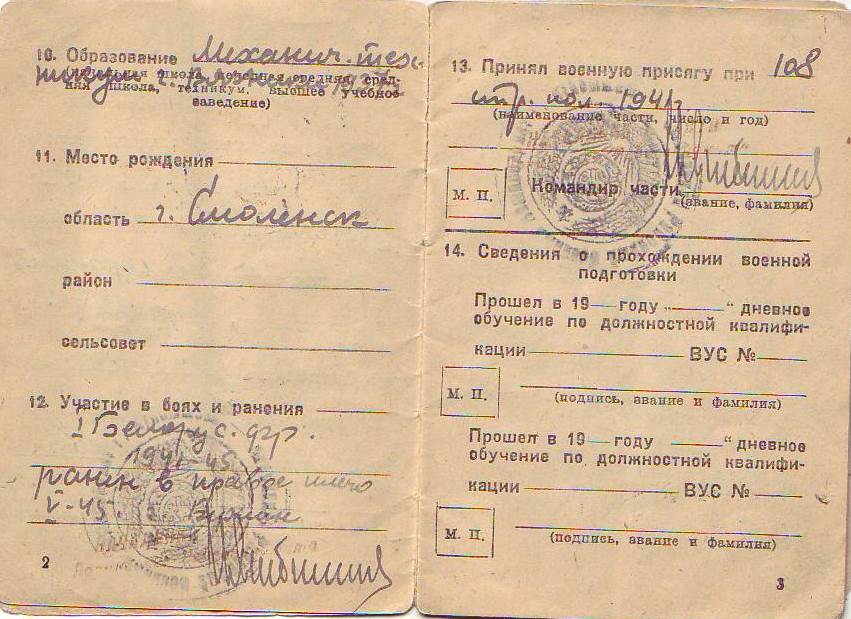 10. Образование Механич. тех-
никум г.
(начальная школа, неполная средняя, сред-
няя школа, техникум, высшее учебное
заведение)
11. Место рождения
область г. Смоленск
район
сельсовет
12. Участие в боях и ранения
I Белорус. фр.
1941-45
ранин в правое плечо
V-45 г. Берлин
2
13. Принял военную присягу при 108
стр. пол. 1941г
(наименование части, число и год)
М. П.
Командир части
(звание, фамилия)
14. Сведения о прохождении военной
подготовки
Прошел в 19 году „ “ дневное
обучение по должностной квалифи-
кации ВУС №
М. П.
(подпись, звание и фамилия)
Прошел в 19 году „ “ дневное
обучение по должностной квалифи-
кации ВУС №
М. П.
(подпись, звание и фамилия)
3